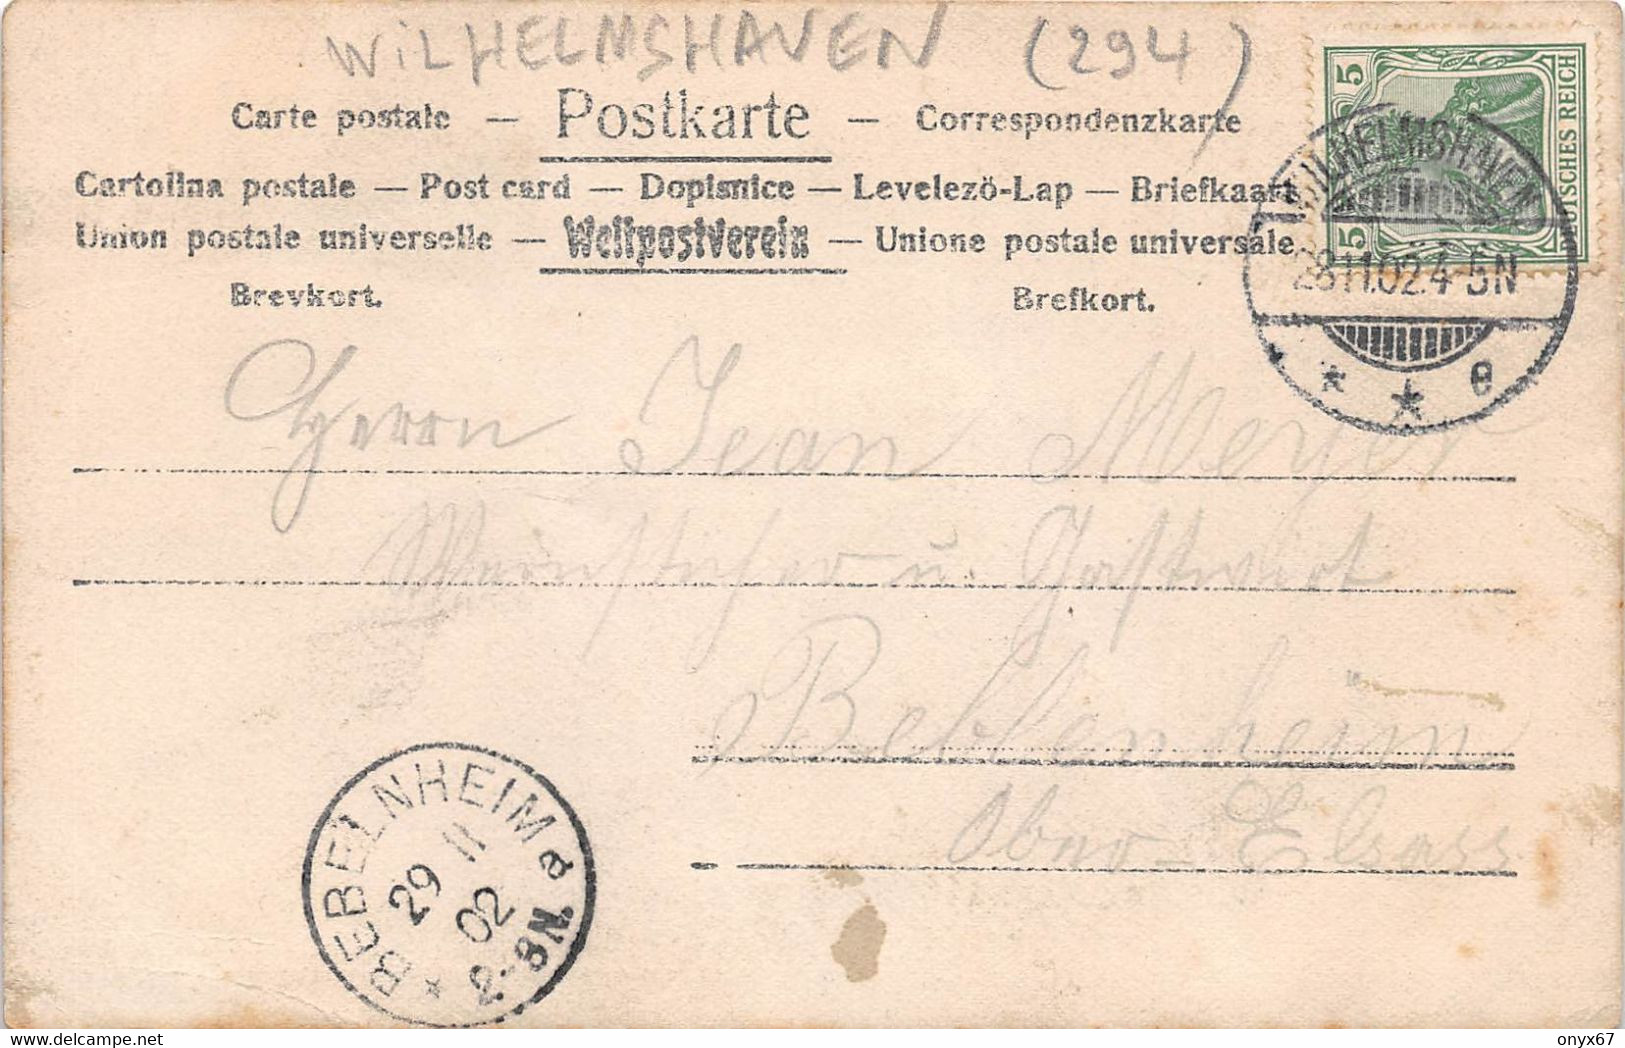 WiLHELMSHAVEN (294)
Carte postale — Postkarte — Correspondenzkarte
Cartolina postale — Post card — Dopisnice — Levelezö-Lap — Briefkaart
Union postale universelle — Weltpostverein — Unione postale universale
Brevkort. Brefkort.
5 5 DEUTSCHES REICH
WILHELMSHAVEN
28.11.02.4-5N
* * e
Herrn Jean Meyer
u. Gastwirt
Beblenheim
Ober-Elsass
BEBELNHEIM
29 11
02
-8N.
*
onyx67